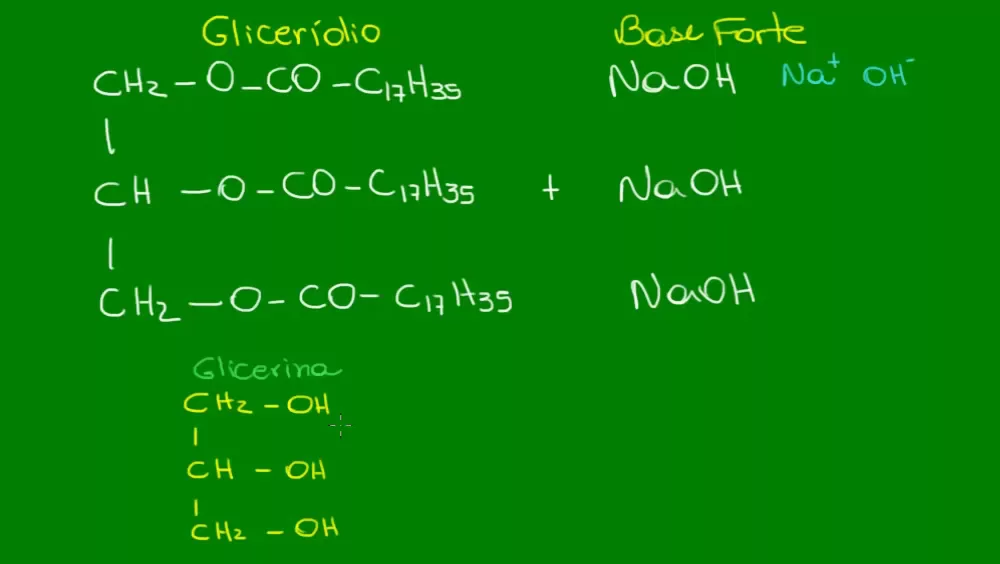 Glicerídio Base Forte
CH2 - O - CO - C17H35 NaOH Na+ OH-
|
CH - O - CO - C17H35 + NaOH
|
CH2 - O - CO - C17H35 NaOH
Glicerina
CH2 - OH
|
CH - OH
|
CH2 - OH